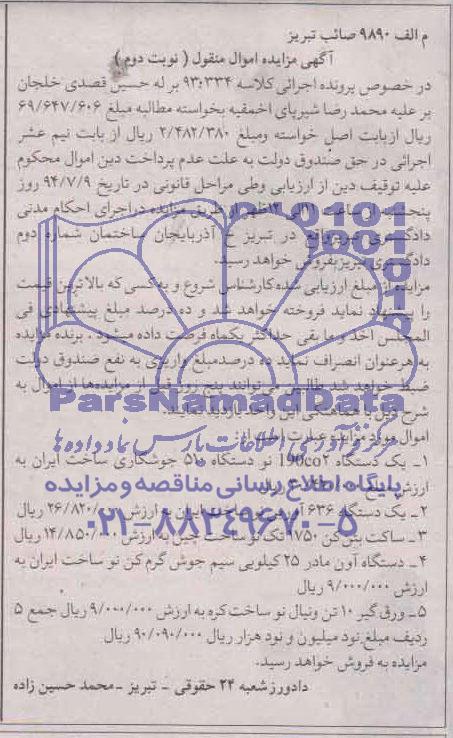 م الف ۹۸۹۰ صائب تبریز
آگهی مزایده اموال منقول ( نوبت دوم )
در خصوص پرونده اجرائی کلاسه ۹۳۰۳۳۴ بر له حسین قصدی خلجان
بر علیه محمد رضا شیربای احمقیه بخواسته مطالبه مبلغ ۶۹/۶۴۷/۶۰۶
ریال ازبابت اصل خواسته ومبلغ ۲/۴۸۲/۳۸۰ ریال از بابت نیم عشر
اجرائی در حق صندوق دولت به علت عدم پرداخت دین اموال محکوم
علیه توقیف دین از ارزیابی وطی مراحل قانونی در تاریخ ۹۴/۷/۹ روز
پنجشنبه از ساعت الی ۱۲ظهر از طریق مزایده دراجرای احکام مدنی
دادگستری تبریزواقع در تبریز خ آذربایجان ساختمان شماره دوم
دادگستری تبریزبفروش خواهد رسید.
مزایده از مبلغ ارزیابی شده کارشناس شروع و به کسی که بالاترین قیمت
را پیشنهاد نماید فروخته خواهد شد و ده درصد مبلغ پیشنهادی فی
المجلس اخذ و ما بقی حداکثر یکماه فرصت داده میشود . برنده مزایده
به هرعنوان انصراف نماید ده درصدمبلغ واریزی به نفع صندوق دولت
ضبط خواهد شد طالبین می توانند پنج روز قبل از مزایده‌ها از اموال به
شرح ذیل با هماهنگی این واحد بازدید نمایند.
اموال مورد مزایده عبارت است از:
۱ـ یک دستگاه 190co۲ نو دستگاه ۵۱۰ جوشکاری ساخت ایران به
ارزش ریال
۲ـ یک دستگاه ۶۳۶ آورهی نو ساخت ایران به ارزش ۲۶/۸۲۰/۰۰۰ ریال
۳ـ ساکت بتن کن ۱۷۵۰ تک نو ساخت چین به ارزش ۱۴/۸۵۰/۰۰۰ ریال
۴ـ دستگاه آون مادر ۲۵ کیلویی سیم جوش گرم کن نو ساخت ایران به
ارزش ۹/۰۰۰/۰۰۰ ریال
۵ـ ورق گیر ۱۰ تن ونبال نو ساخت کره به ارزش ۹/۰۰۰/۰۰۰ ریال جمع ۵
ردیف مبلغ نود میلیون و نود هزار ریال ۹۰/۰۹۰/۰۰۰ ریال
مزایده به فروش خواهد رسید.
دادورز شعبه ۲۴ حقوقی - تبریز - محمد حسین زاده
ParsNamadData
مرکز فرآوری اطلاعات پارس نماد داده ها
پایگاه اطلاع رسانی مناقصه و مزایده
۰۲۱-۸۸۳۴۹۶۷۰-۵